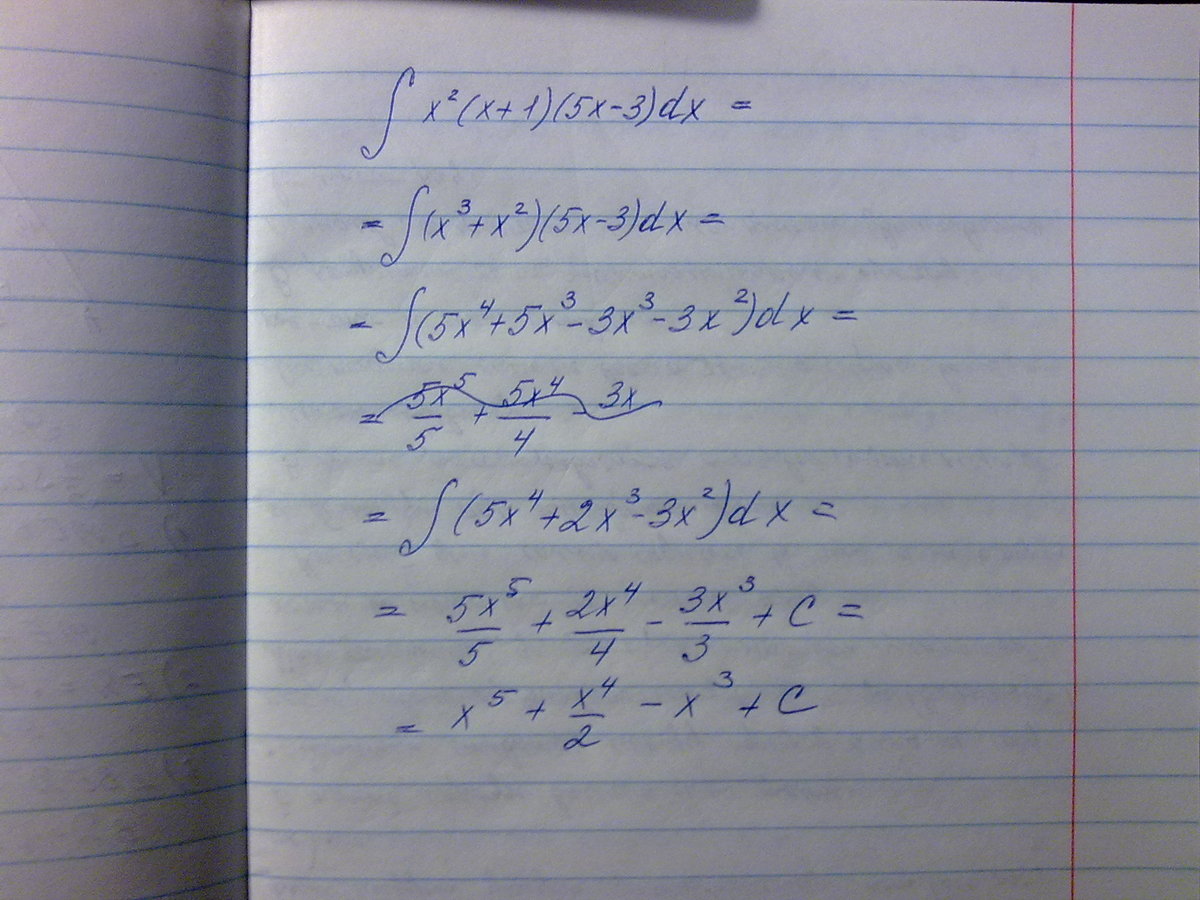 ∫ x²(x+1)(5x-3)dx =
= ∫(x³+x²)(5x-3)dx =
= ∫(5x⁴+5x³-3x³-3x²)dx =
= 5x⁵/5 + 5x⁴/4 - 3x
= ∫(5x⁴+2x³-3x²)dx =
= 5x⁵/5 + 2x⁴/4 - 3x³/3 + C =
= x⁵ + x⁴/2 - x³ + C